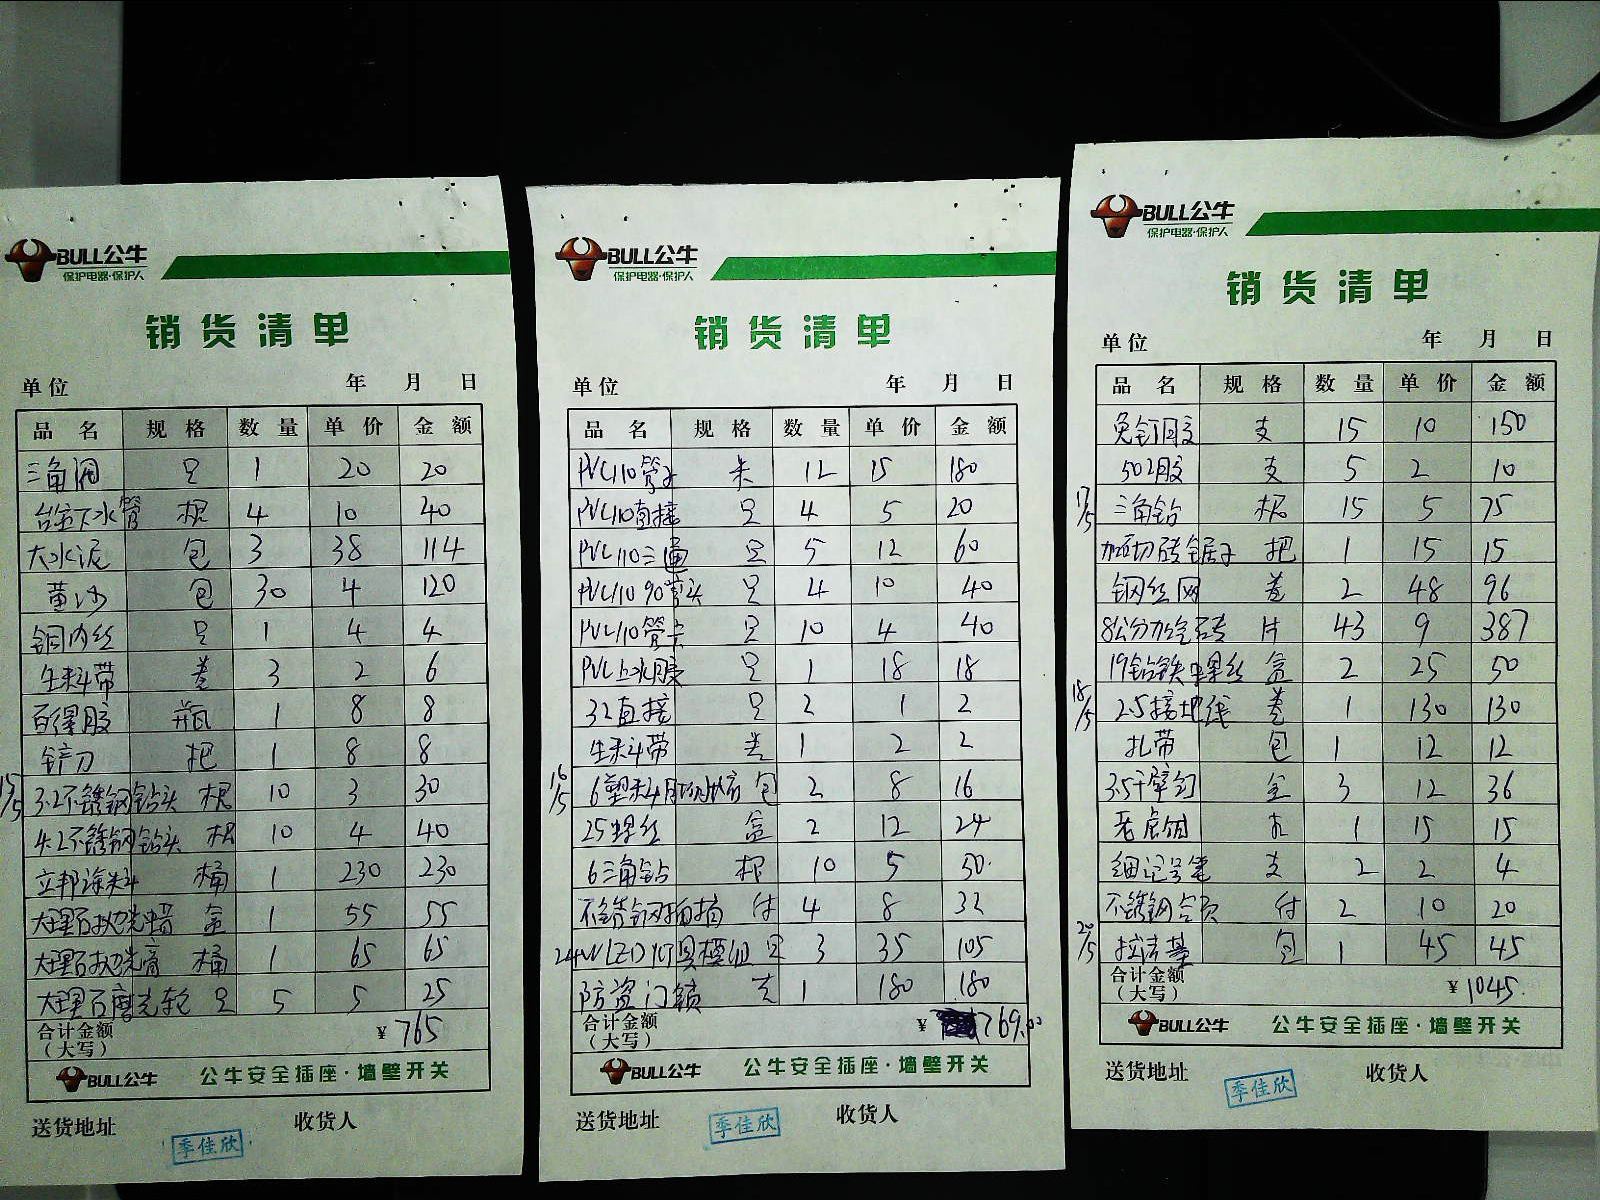 BULL公牛
保护电器·保护人
销货清单
单位 年 月 日
品名 规格 数量 单价 金额
三角阀 只 1 20 20
台盆下水管 根 4 10 40
大水泥 包 3 38 114
黄沙 包 30 4 120
铜内丝 只 1 4 4
生料带 卷 3 2 6
百得胶 瓶 1 8 8
铲刀 把 1 8 8
15/5 3.2不锈钢钻头 根 10 3 30
4.2不锈钢钻头 根 10 4 40
立邦涂料 桶 1 230 230
大理石抛光蜡 盒 1 55 55
大理石抛光膏 桶 1 65 65
大理石磨光轮 只 5 5 25
合计金额（大写） ¥765
BULL公牛 公牛安全插座·墙壁开关
送货地址 收货人
季佳欣
BULL公牛
保护电器·保护人
销货清单
单位 年 月 日
品名 规格 数量 单价 金额
PVC110管子 米 12 15 180
PVC110直接 只 4 5 20
PVC110三通 只 5 12 60
PVC110 90弯头 只 4 10 40
PVC110管卡 只 10 4 40
PVC上水胶 只 1 18 18
32直接 只 2 1 2
生料带 卷 1 2 2
16/5 6塑料膨胀 包 2 8 16
25螺丝 盒 2 12 24
6三角钻 根 10 5 50
不锈钢插销 付 4 8 32
24W LED灯具模组 只 3 35 105
防盗门锁 1 180 180
合计金额（大写） ¥ 769.00
BULL公牛 公牛安全插座·墙壁开关
送货地址 收货人
季佳欣
BULL公牛
保护电器·保护人
销货清单
单位 年 月 日
品名 规格 数量 单价 金额
免钉胶 支 15 10 150
502胶 支 5 2 10
17/5 三角钻 根 15 5 75
加切砖锯子 把 1 15 15
钢丝网 卷 2 48 96
8公分加气砖 片 43 9 387
19钻铁螺丝 盒 2 25 50
18/5 2.5接地线 卷 1 130 130
扎带 包 1 12 12
35干壁钉 盒 3 12 36
老虎钳 1 15 15
细记号笔 支 2 2 4
不锈钢合页 付 2 10 20
20/5 拉法基 包 1 45 45
合计金额（大写） ¥1045.
BULL公牛 公牛安全插座·墙壁开关
送货地址 收货人
季佳欣